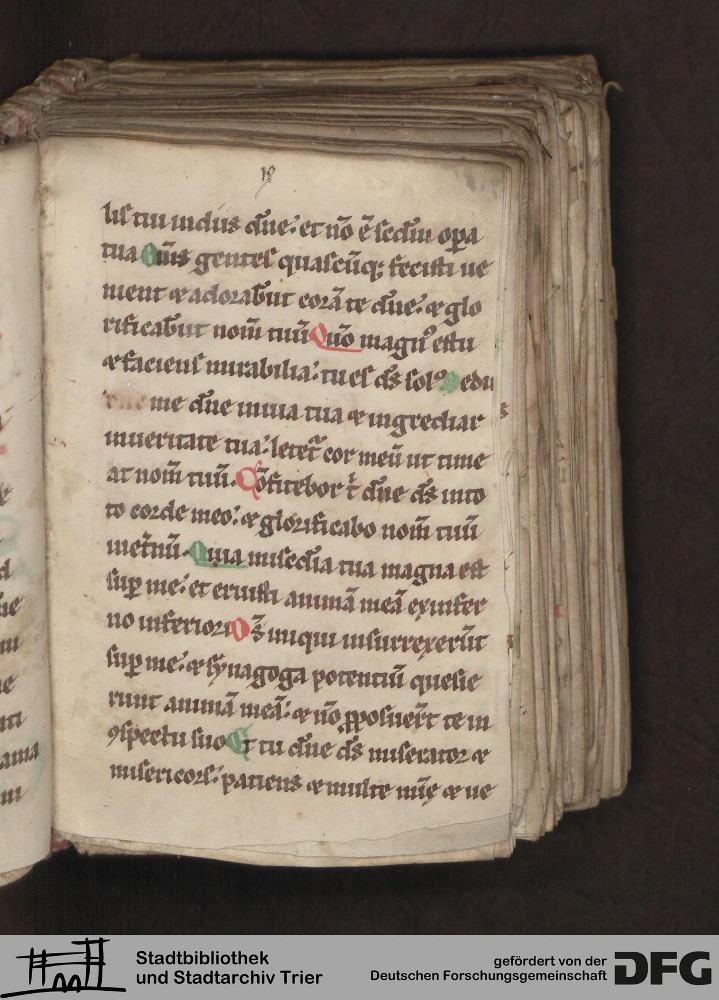 18
lis tui indiis dñe: et nõ ẽ scdm opa
tua Om̃s gentes quascũq; fecisti ve
nient ⁊ adorabũt corã te dñe: ⁊ glo
rificabũt nom̃ tuũ Quõ magnꝰ es tu
⁊ faciens mirabilia: tu es ds̃ solꝰ Dedu
me dñe in via tua ⁊ ingrediar
in veritate tua: letet̃ cor meũ ut time
at nom̃ tuũ. Cõfitebor t̃ dñe ds̃ in to
to corde meo: ⁊ glorificabo nom̃ tuũ
in et̃nũ. Quia mis̃cdia tua magna est
sup me: et eruisti animã meã ex infer
no inferiori Ds̃ iniqui insurrexerũt
sup me: ⁊ synagoga potentiũ quesie
runt animã meã: ⁊ nõ ꝓposuer̃t te in
ꝯspectu suo Et tu dñe ds̃ miserator ⁊
misericors: patiens ⁊ multe mĩe ⁊ ve
Stadtbibliothek
und Stadtarchiv Trier
gefördert von der
Deutschen Forschungsgemeinschaft
DFG